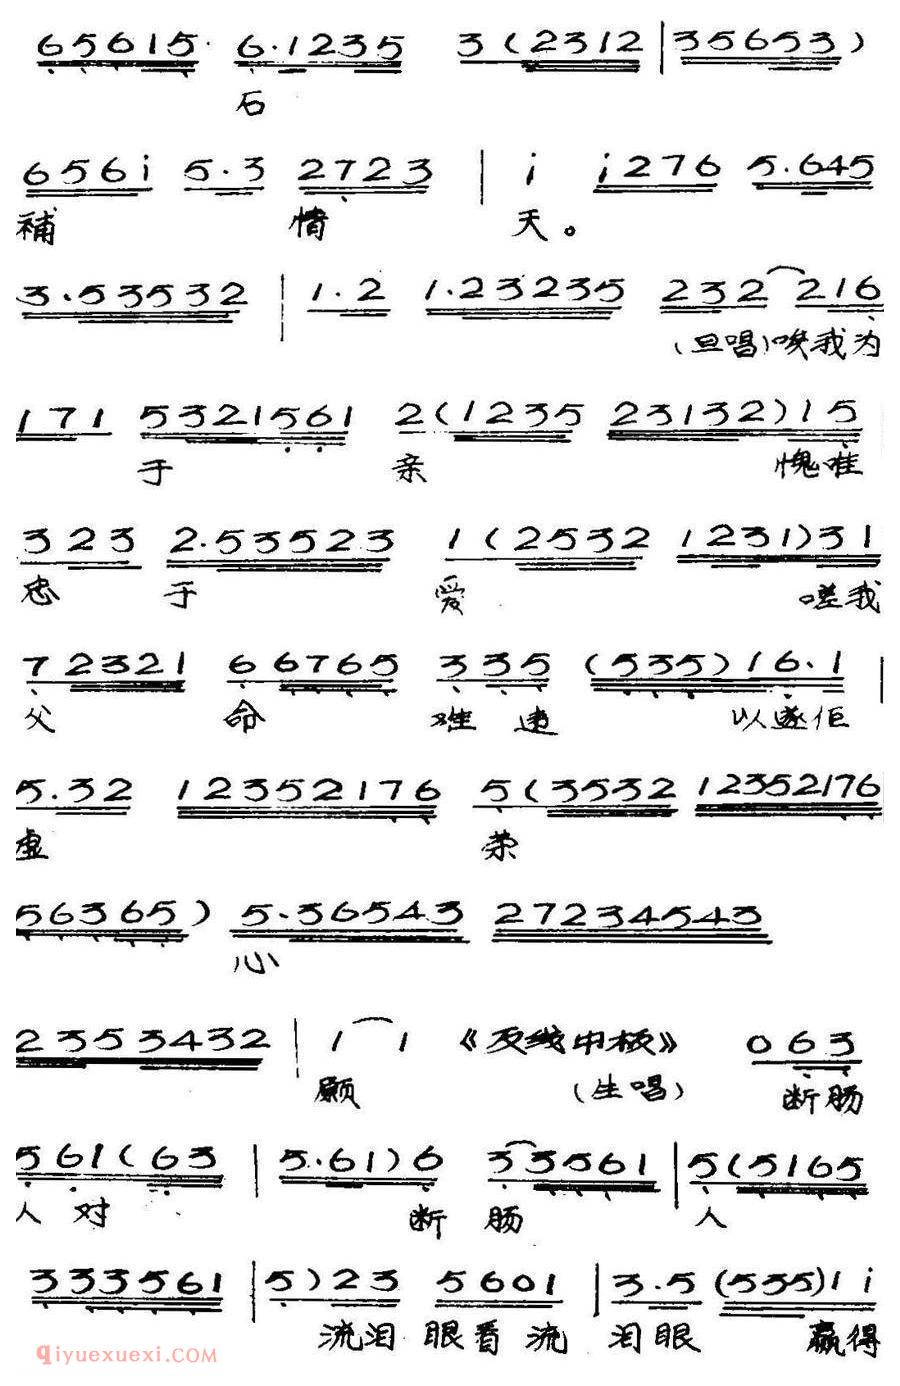 65615. 6.1235 3(2312 | 35653)
石
656i 5.3 2723 | i i276 5.645
補 情 天。
3.53532 | 1.2 1.23235 232 216
(旦唱)唉我为
171 5321561 2(1235 23132)15
于 亲 愧唯
323 2.53523 1(2532 1231)31
忠 于 爱 嗟我
72321 66765 335 (535)16.1 |
父 命 难 违 以遂佢
5.32 12352176 5(3532 12352176
虚 荣
56365) 5.36543 27234543
心
2353432 | 1 1 《反线中板》 063
願 (生唱) 断肠
561(63 | 5.61)6 33561 | 5(5165
人 对 断 肠 人
333561 | 5)23 5601 | 3.5 (535)1i
流泪 眼看 流 泪眼 赢得
qiyuexuexi.com